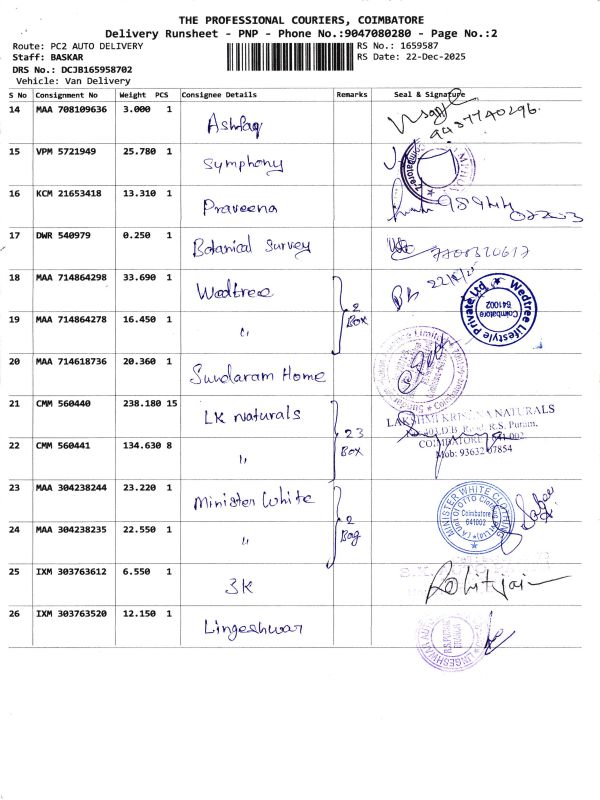 THE PROFESSIONAL COURIERS, COIMBATORE
Delivery Runsheet - PNP - Phone No.:9047080280 - Page No.:2
Route: PC2 AUTO DELIVERY
Staff: BASKAR
DRS No.: DCJB165958702
Vehicle: Van Delivery
RS No.: 1659587
RS Date: 22-Dec-2025
S No Consignment No Weight PCS Consignee Details Remarks Seal & Signature
14 MAA 708109636 3.000 1 Ashfaq
15 VPM 5721949 25.780 1 Symphony
16 KCM 21653418 13.310 1 Praveena
17 DWR 540979 0.250 1 Botanical Survey
18 MAA 714864298 33.690 1 Wedtree 2 Box
Wedtree Lifestyle Private Ltd.
Coimbatore
641002
19 MAA 714864278 16.450 1 "
20 MAA 714618736 20.360 1 Sundaram Home
21 CMM 560440 238.180 15 LK Naturals 23 Box
LAKSHMI KRISHNA NATURALS
R.S. Puram,
COIMBATORE
Mob: 93632 07854
22 CMM 560441 134.630 8 "
23 MAA 304238244 23.220 1 Minister White 2 Bag
MINISTER WHITE CLOTHING
Coimbatore
641002
24 MAA 304238235 22.550 1 "
25 IXM 303763612 6.550 1 3K Rohit jain
26 IXM 303763520 12.150 1 Lingeshwar